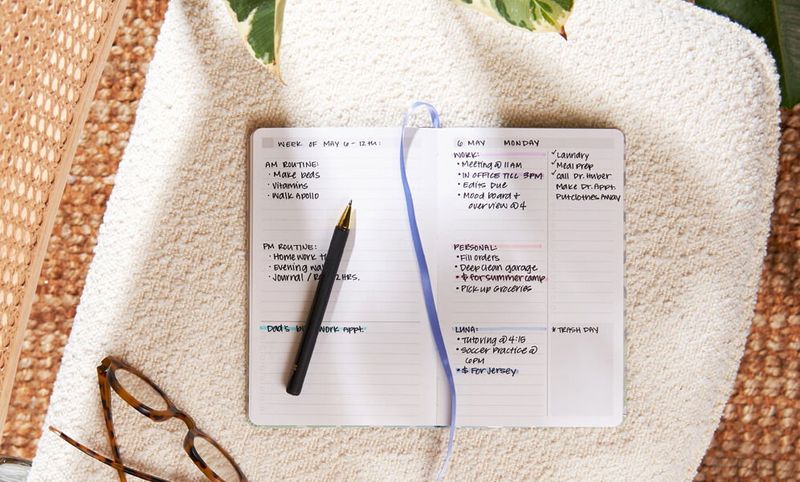 WEEK OF MAY 6-12TH:
AM ROUTINE:
• Make beds
• Vitamins
• Walk Apollo
PM ROUTINE:
• Homework
• Evening
• Journal / 2 HRS.
Dad's work Appt
6 MAY MONDAY
WORK:
• Meeting @ 11AM
• IN OFFICE TILL 3PM
• Edits Due
• Mood board +
overview @ 4
PERSONAL:
• Fill orders
• Deep clean garage
• $ for summer camp
• Pick up Groceries
LUNA:
• Tutoring @ 4:15
• Soccer Practice @
6PM
• $ For Jersey
✓ Laundry
✓ Meal Prep
✓ Call Dr. Huber
Make Dr. Appt.
Put clothes Away
* TRASH DAY